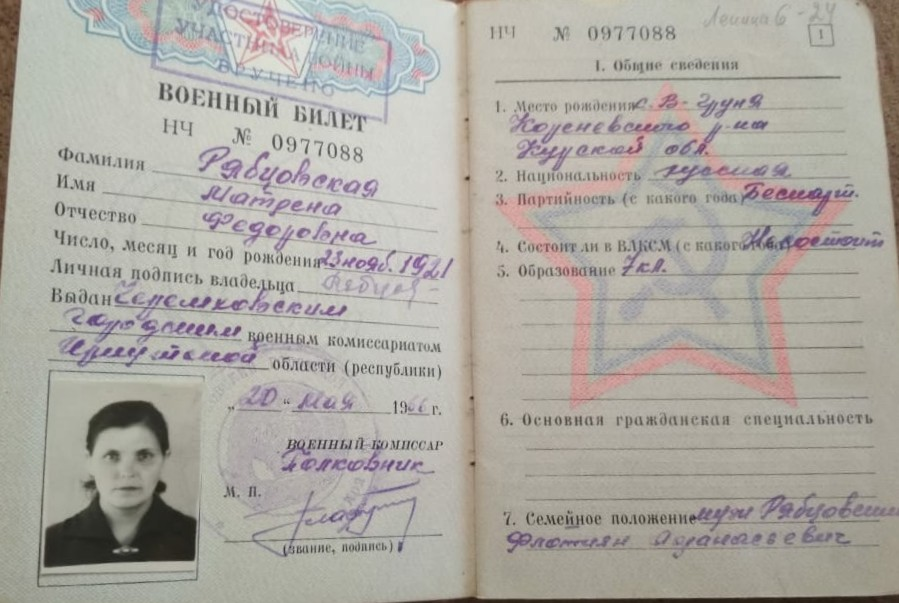 УДОСТОВЕРЕНИЕ
УЧАСТНИКА ВОЙНЫ
ВРУЧЕНО
ВОЕННЫЙ БИЛЕТ
НЧ № 0977088
Фамилия Рябцовская
Имя Матрена
Отчество Федоровна
Число, месяц и год рождения 23 нояб. 1921
Личная подпись владельца
Выдан Черемховским
городским военным комиссариатом
Иркутской области (республики)
„20“ мая 1966 г.
ВОЕННЫЙ КОМИССАР
Полковник
М. П.
(звание, подпись)
НЧ № 0977088
Ленина 6 - 24
1
1. Общие сведения
1. Место рождения с. В-Груня
Кореневского р-на
Курской обл.
2. Национальность русская
3. Партийность (с какого года) Беспарт.
4. Состоит ли в ВЛКСМ (с какого года) Не состоит
5. Образование 7 кл.
6. Основная гражданская специальность
7. Семейное положение муж Рябцовский
Афанасьевич